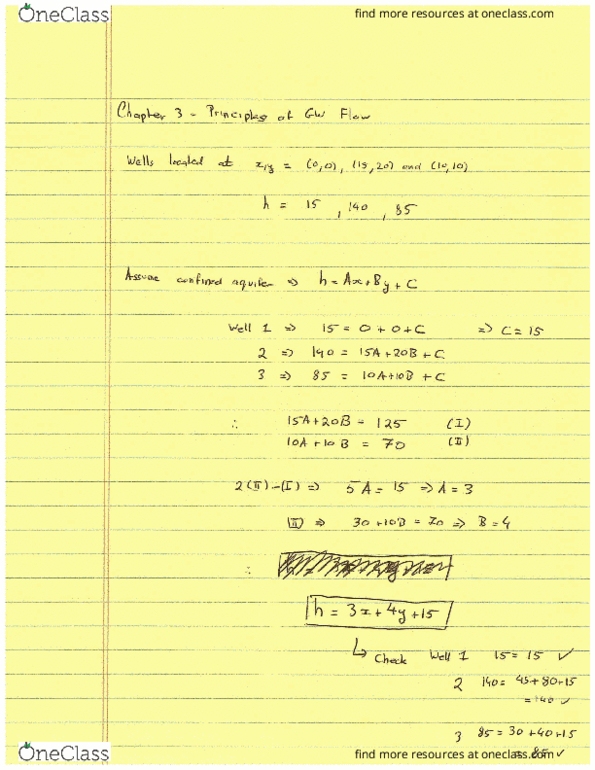 OneClass
find more resources at oneclass.com
Chapter 3 - Principles of GW Flow
Wells located at x,y = (0,0), (15,20) and (10,10)
h = 15, 140, 85
Assume confined aquifer => h = Ax + By + C
Well 1 => 15 = 0 + 0 + C => C = 15
2 => 140 = 15A + 20B + C
3 => 85 = 10A + 10B + C
∴ 15A + 20B = 125 (I)
10A + 10B = 70 (II)
2(II) - (I) => 5A = 15 => A = 3
(II) => 30 + 10B = 70 => B = 4
∴
h = 3x + 4y + 15
↳ Check Well 1 15 = 15 ✓
2 140 = 45 + 80 + 15
= 140 ✓
3 85 = 30 + 40 + 15
= 85 ✓
OneClass
find more resources at oneclass.com